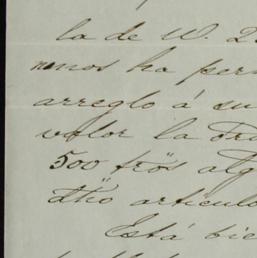 la de W. 2
menos ha per
arreglo á su
valor la
500 tros alg
dho articulo
Está bie